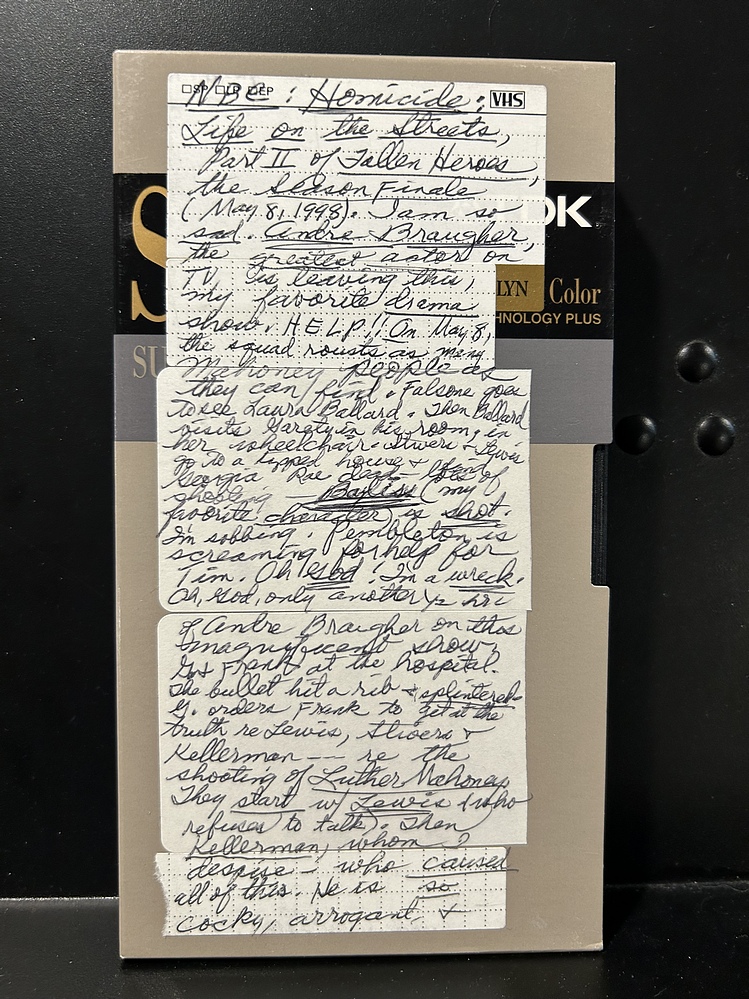 □SP □LP □EP
VHS
NBC: Homicide:
Life on the Streets,
Part II of Fallen Heroes,
the Season Finale
(May 8, 1998). I am so
sad. Andre Braugher,
the greatest actor on
TV is leaving this,
my favorite drama
show. HELP!! On May 8,
the squad rousts as many
Mahoney people as
they can find. Falsone goes
to see Laura Ballard. Then Ballard
visits Gharty in his room, in
her wheelchair. Stivers & Lewis
go to a house & find
Georgia Rae dead. Lots of
shooting — Bayliss (my
favorite character) is shot.
I'm sobbing. Pembleton is
screaming for help for
Tim. Oh God! I'm a wreck.
Oh, God, only another ½ hr
of Andre Braugher on this
magnificent show.
G & Frank at the hospital.
The bullet hit a rib & splintered
G. orders Frank to get at the
truth re Lewis, Stivers &
Kellerman — re the
shooting of Luther Mahoney
They start w/ Lewis (who
refuses to talk). Then
Kellerman, whom I
despise — who caused
all of this. He is so
cocky, arrogant, &
S
DK
LYN
Color
HNOLOGY PLUS
SU